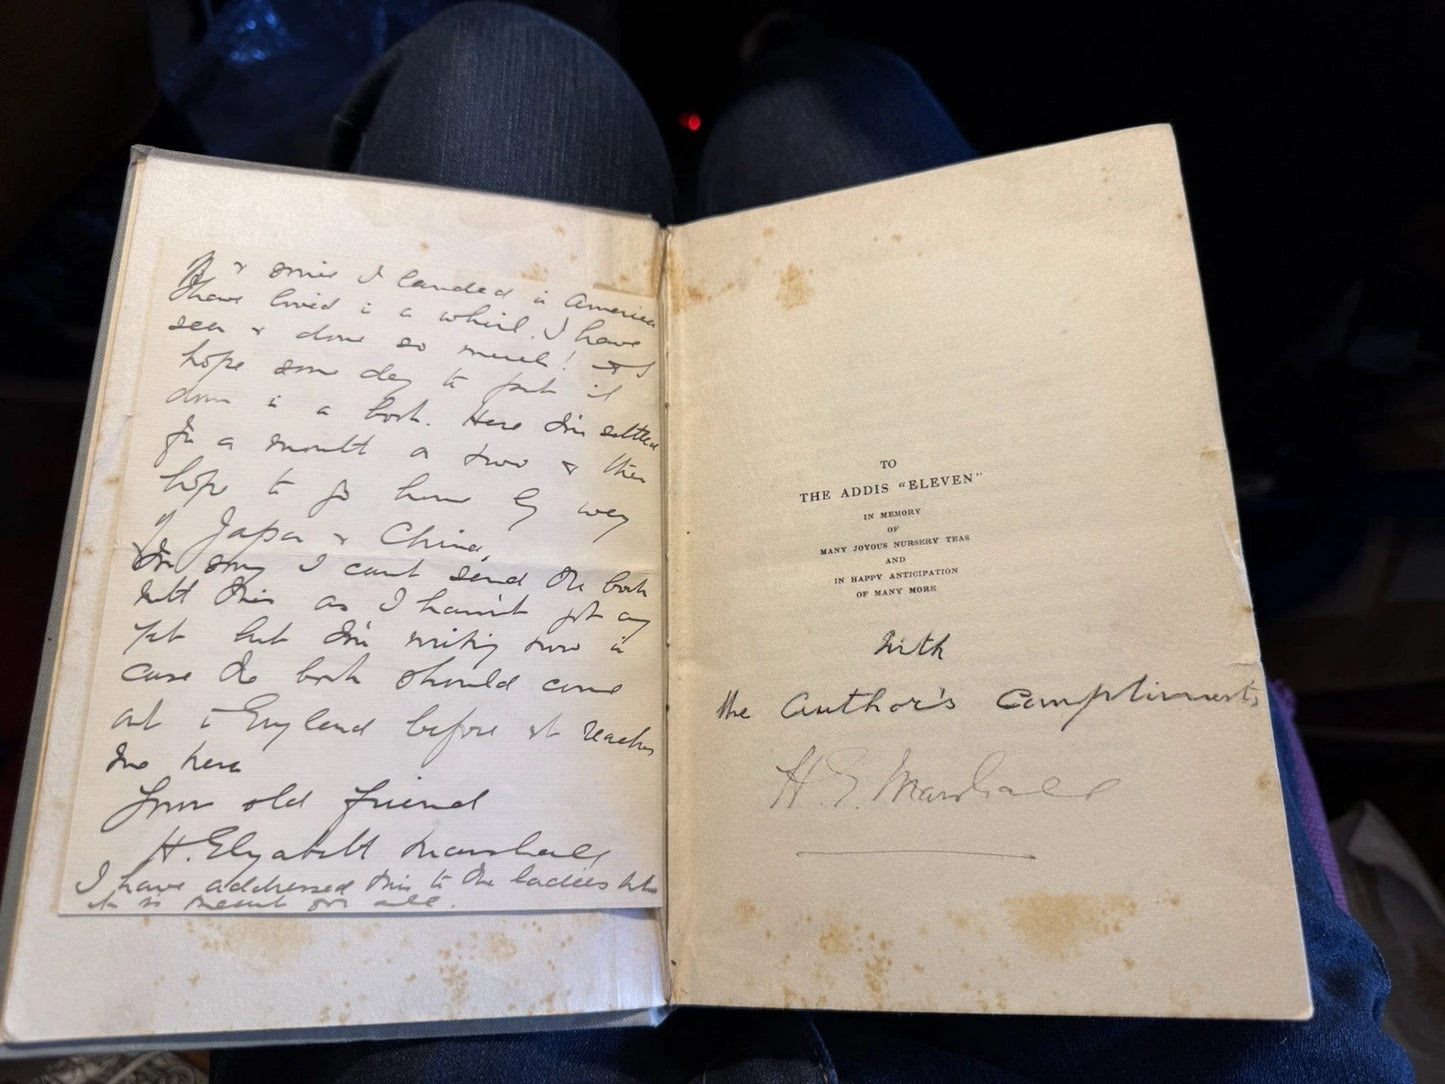 & since I landed in America
I have lived in a whirl. I have
seen & done so much! & I
hope some day to put it
down in a book. Here I'm settled
for a month or two & then
hope to go home by way
of Japan & China.
I'm sorry I can't send the book
with this as I haven't got any
yet but I'm writing now in
case the book should come
out in England before it reaches
me here
Your old friend
H. Elizabeth Marshall
I have addressed this to the ladies but
it is meant for all.
TO
THE ADDIS "ELEVEN"
IN MEMORY
OF
MANY JOYOUS NURSERY TEAS
AND
IN HAPPY ANTICIPATION
OF MANY MORE
With
the Author's Compliments
H. E. Marshall